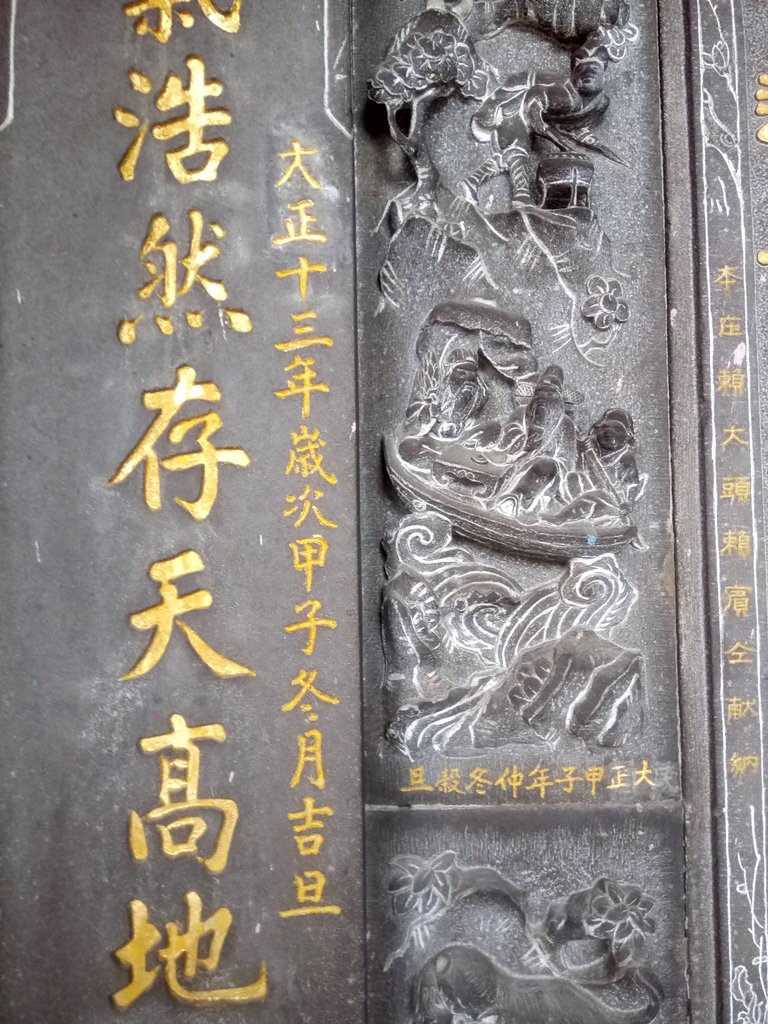 氣浩然存天高地
大正十三年歲次甲子冬月吉旦
大正甲子年仲冬穀旦
本庄賴大頭賴賓仝献納